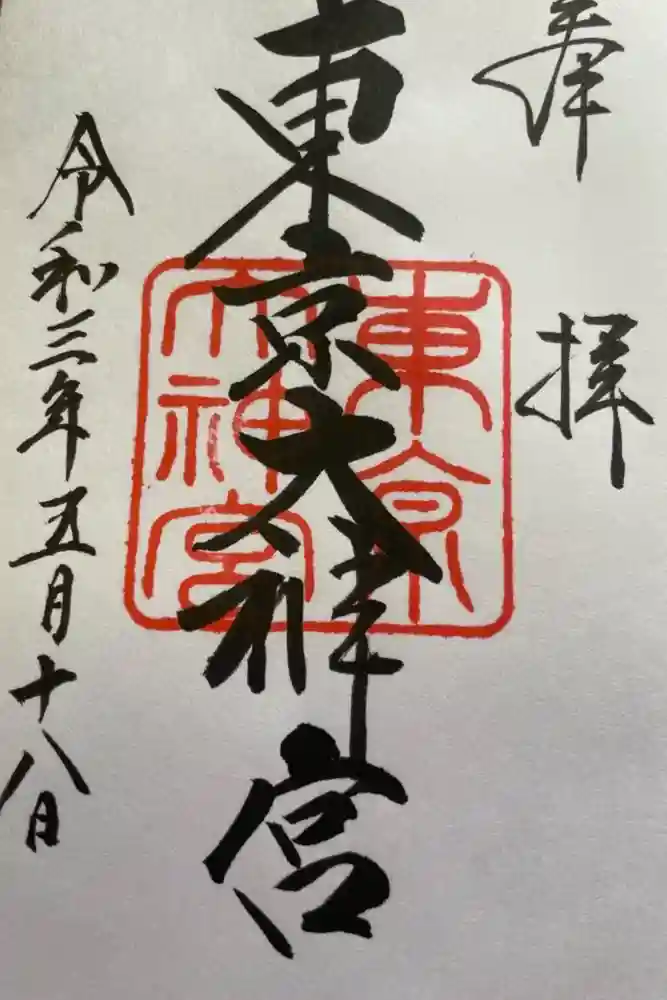 奉拝
東京大神宮
東京
大神宮
令和三年五月十八日